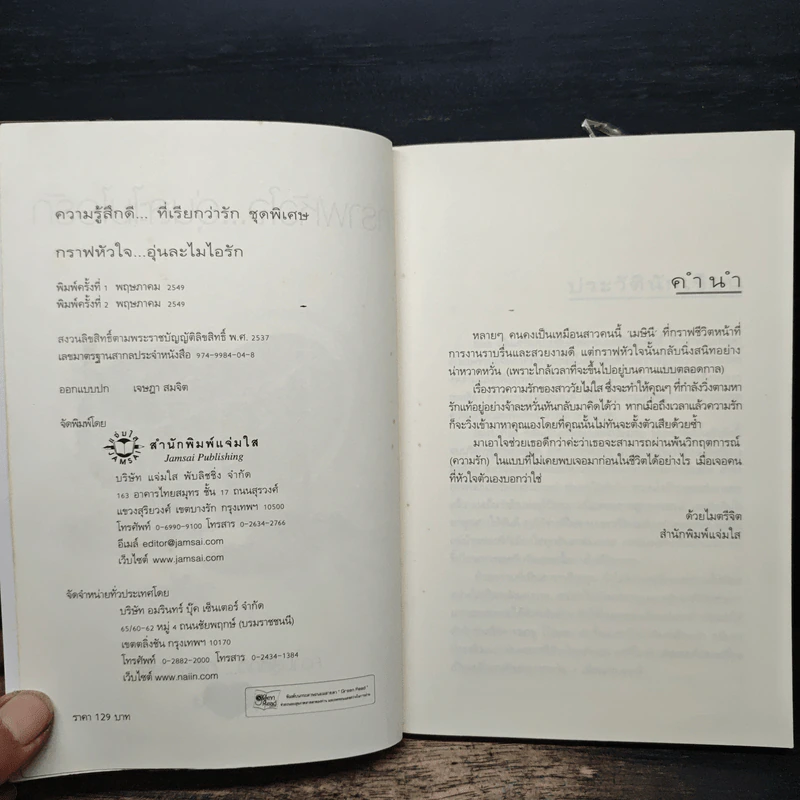 ความรู้สึกดี... ที่เรียกว่ารัก ชุดพิเศษ
กราฟหัวใจ...อุ่นละไมไอรัก
พิมพ์ครั้งที่ 1 พฤษภาคม 2549
พิมพ์ครั้งที่ 2 พฤษภาคม 2549
สงวนลิขสิทธิ์ตามพระราชบัญญัติลิขสิทธิ์ พ.ศ. 2537
เลขมาตรฐานสากลประจำหนังสือ 974-9984-04-8
ออกแบบปก เจษฎา สมจิต
จัดพิมพ์โดย
แจ่มใส
JAMSAI
สำนักพิมพ์แจ่มใส
Jamsai Publishing
บริษัท แจ่มใส พับลิชชิ่ง จำกัด
163 อาคารไทยสมุทร ชั้น 17 ถนนสุรวงศ์
แขวงสุริยวงศ์ เขตบางรัก กรุงเทพฯ 10500
โทรศัพท์ 0-6990-9100 โทรสาร 0-2634-2766
อีเมล์ editor@jamsai.com
เว็บไซต์ www.jamsai.com
จัดจำหน่ายทั่วประเทศโดย
บริษัท อมรินทร์ บุ๊ค เซ็นเตอร์ จำกัด
65/60-62 หมู่ 4 ถนนชัยพฤกษ์ (บรมราชชนนี)
เขตตลิ่งชัน กรุงเทพฯ 10170
โทรศัพท์ 0-2882-2000 โทรสาร 0-2434-1384
เว็บไซต์ www.naiin.com
Green Read
พิมพ์บนกระดาษถนอมสายตา "Green Read"
ราคา 129 บาท
คำนำ
หลายๆ คนคงเป็นเหมือนสาวคนนี้ 'เมษินี' ที่กราฟชีวิตหน้าที่
การงานราบรื่นและสวยงามดี แต่กราฟหัวใจนั้นกลับนิ่งสนิทอย่าง
น่าหวาดหวั่น (เพราะใกล้เวลาที่จะขึ้นไปอยู่บนคานแบบตลอดกาล)
เรื่องราวความรักของสาววัยไม่ใส ซึ่งจะทำให้คุณๆ ที่กำลังวิ่งตามหา
รักแท้อยู่อย่างจ้าละหวั่นหันกลับมาคิดได้ว่า หากเมื่อถึงเวลาแล้วความรัก
ก็จะวิ่งเข้ามาหาคุณเองโดยที่คุณนั้นไม่ทันจะตั้งตัวเสียด้วยซ้ำ
มาเอาใจช่วยเธอดีกว่าค่ะว่าเธอจะสามารถผ่านพ้นวิกฤตการณ์
(ความรัก) ในแบบที่ไม่เคยพบเจอมาก่อนในชีวิตได้อย่างไร เมื่อเจอคน
ที่หัวใจตัวเองบอกว่าใช่
ด้วยไมตรีจิต
สำนักพิมพ์แจ่มใส